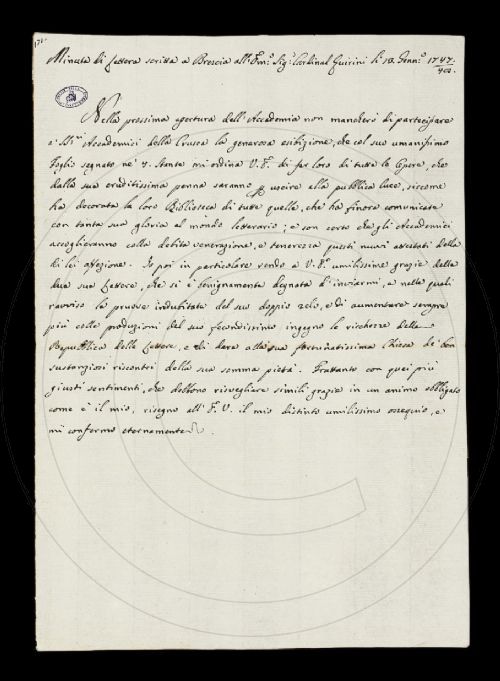 Minuta di lettera scritta a Brescia all' Em.º Sig.r Cardinal Quirini li 18. Genn.º 1747/48.
Nella prossima apertura dell' Accademia non mancherò di partecipare
a' SS.ri Accademici della Crusca la generosa esibizione, che col suo umanissimo
foglio segnato ne' 4. stante mi ordina V. E. di far loro di tutte le Opere, che
dalla sua eruditissima penna saranno p uscire alla pubblica luce, siccome
ha decorata la loro Biblioteca di tutte quelle, che ha finora comunicate
con tanta sua gloria al mondo letterario; e son certo che gli Accademici
accoglieranno colla debita venerazione, e tenerezza questi nuovi attestati della
di lei affezione. Io poi in particolare rendo a V. E. umilissime grazie delle
due sue lettere, che si è benignamente degnata d' inviarmi, e nelle quali
ravviso le pruove indubitate del suo doppio zelo, e di aumentare sempre
più colle produzioni del suo fecondissimo ingegno le ricchezze della
Repubblica delle lettere, e di dare alla sua fortunatissima Chiesa de' ben
sustanziosi riscontri della sua somma pietà. Frattanto con quei più
giusti sentimenti, che debbono risvegliare simili grazie in un animo obbligato
come è il mio, risegno all' E. V. il mio distinto umilissimo ossequio, e
mi confermo eternamente